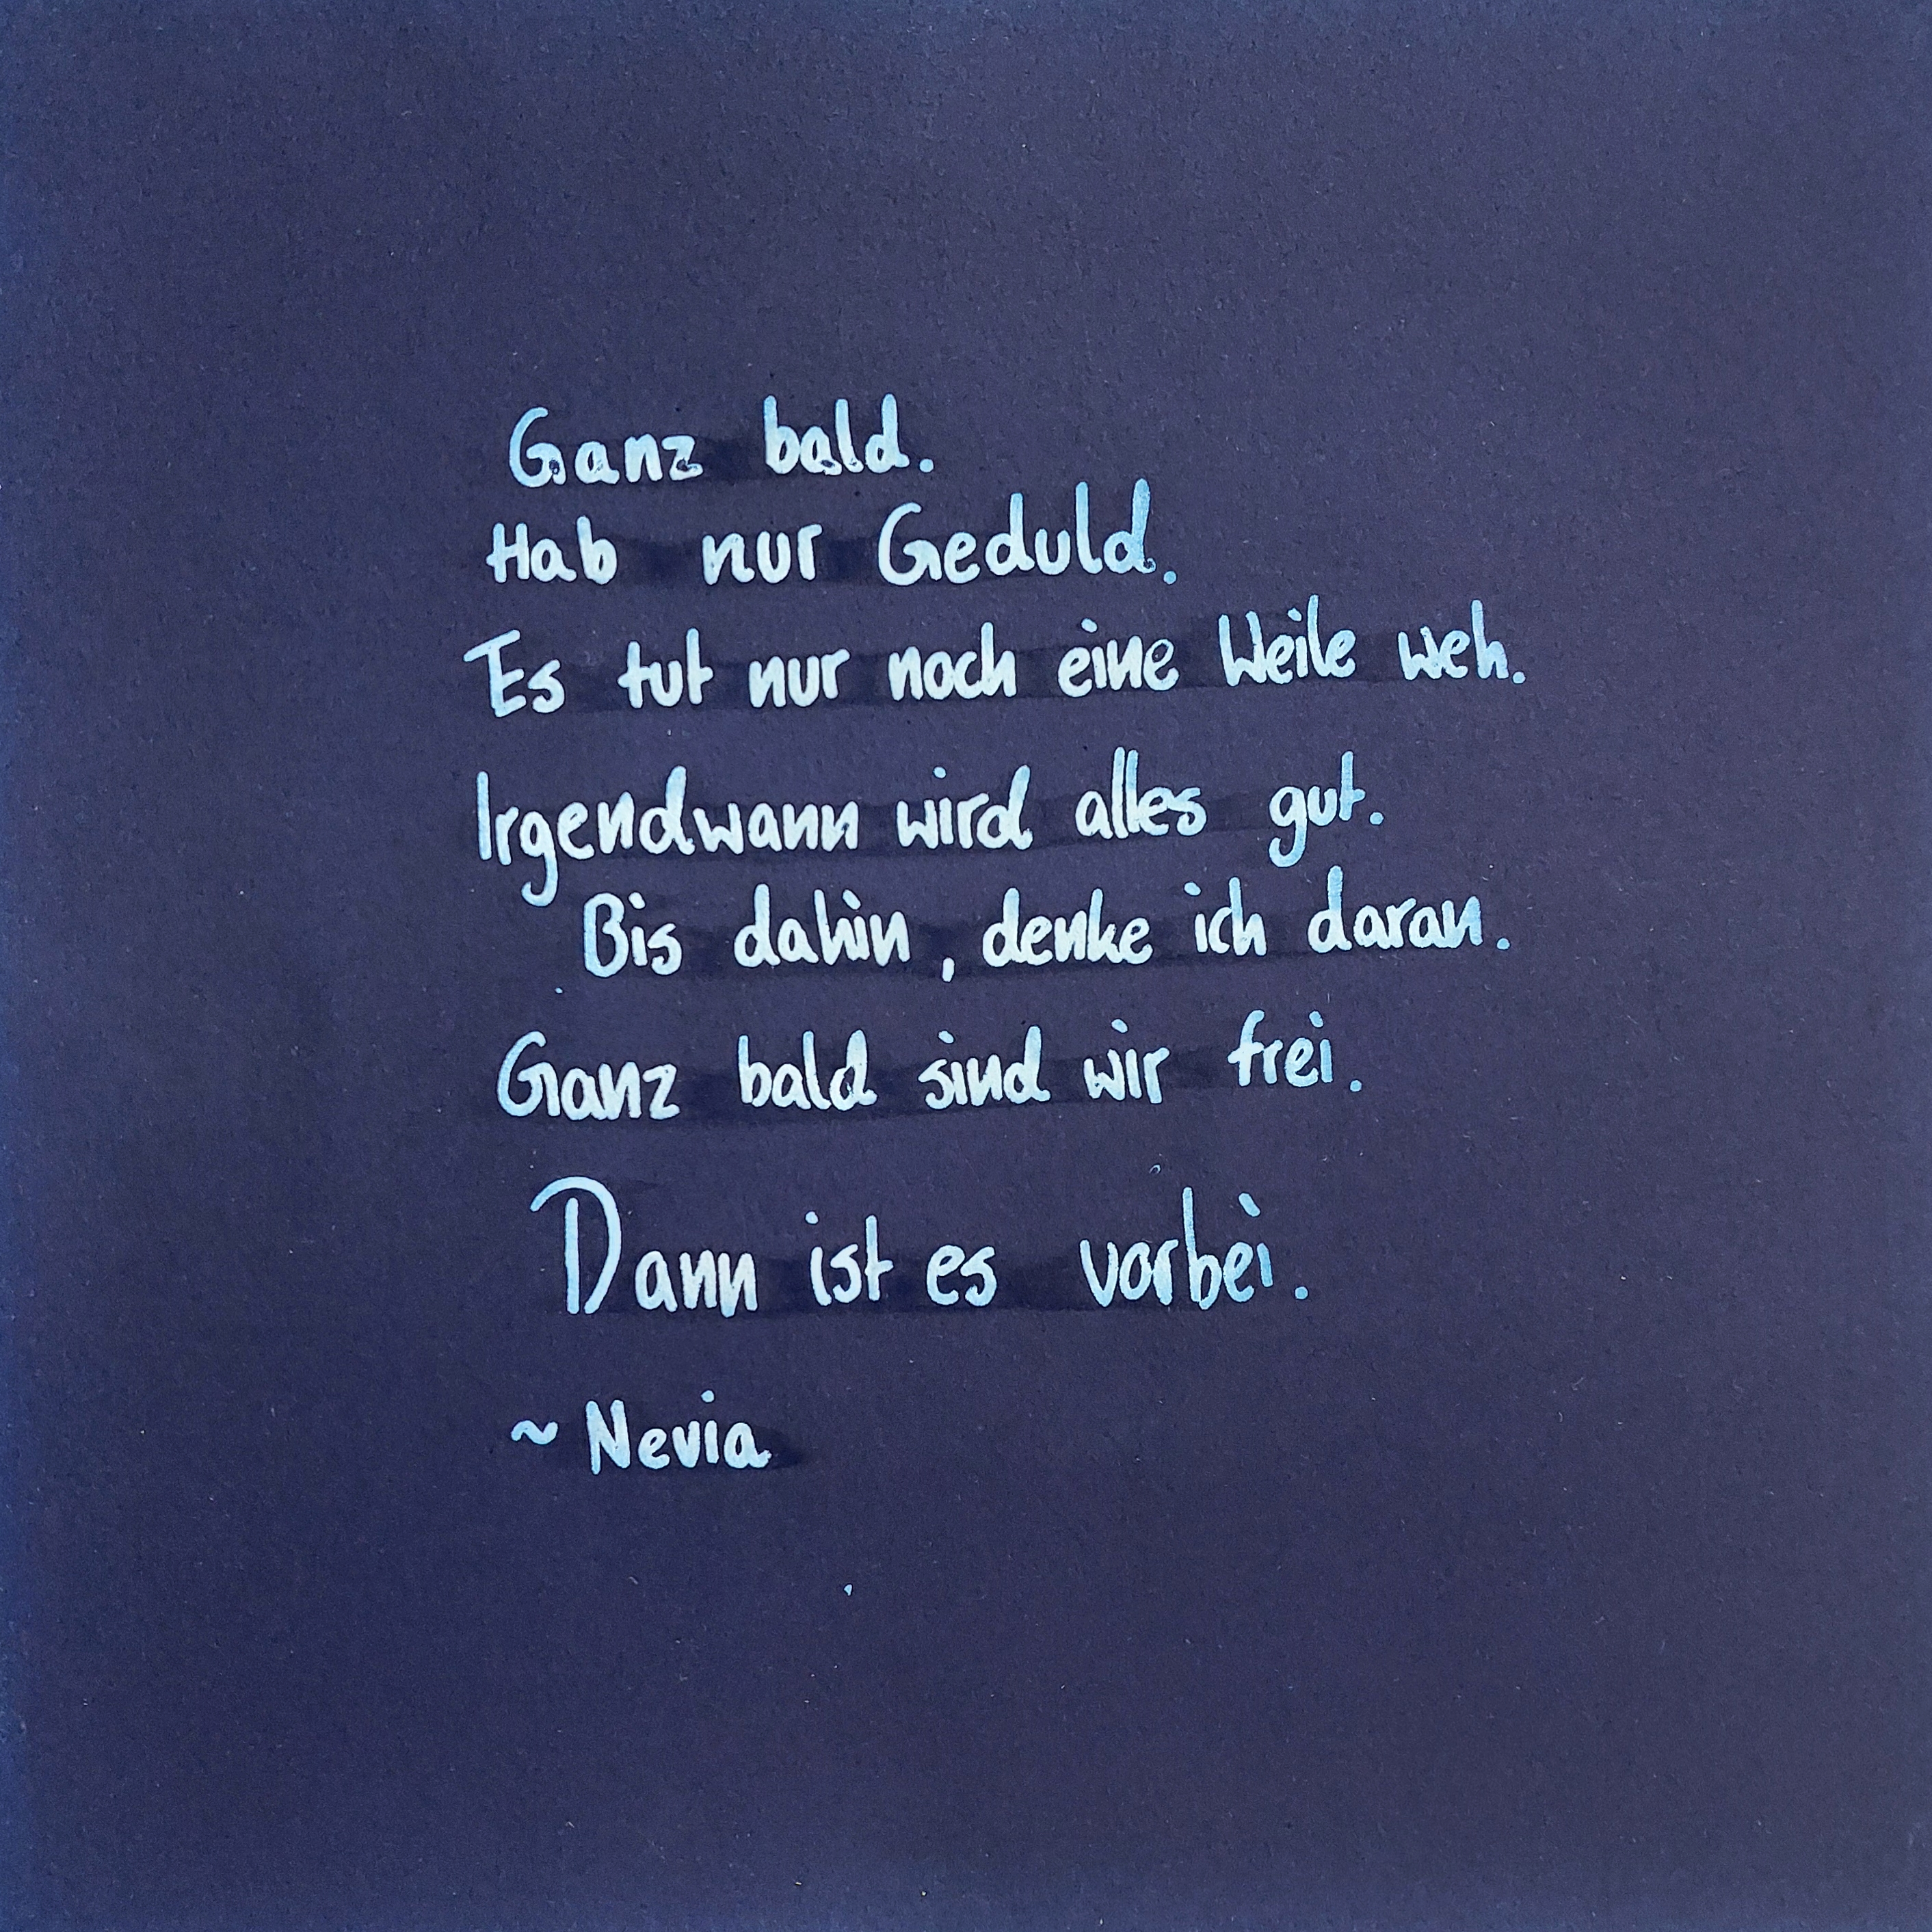 Ganz bald.
Hab nur Geduld.
Es tut nur noch eine Weile weh.
Irgendwann wird alles gut.
Bis dahin, denke ich daran.
Ganz bald sind wir frei.
Dann ist es vorbei.
~ Nevia